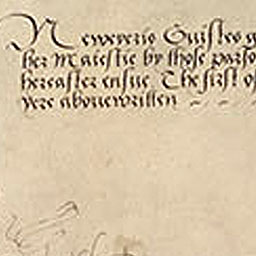 Newyeres Guiftes g
her Maiestie by those parso
hereafter ensue The first of
yere abouewritten